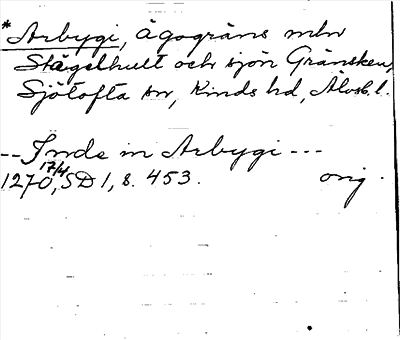 *Arbygi, ägogräns mln
Stägelhult och sjön Gränsken,
Sjötofta sn, Kinds hd, Älvsb. l.
-- Inde in Arbygi ---
1270 17/4, SD 1, s. 453. orig.